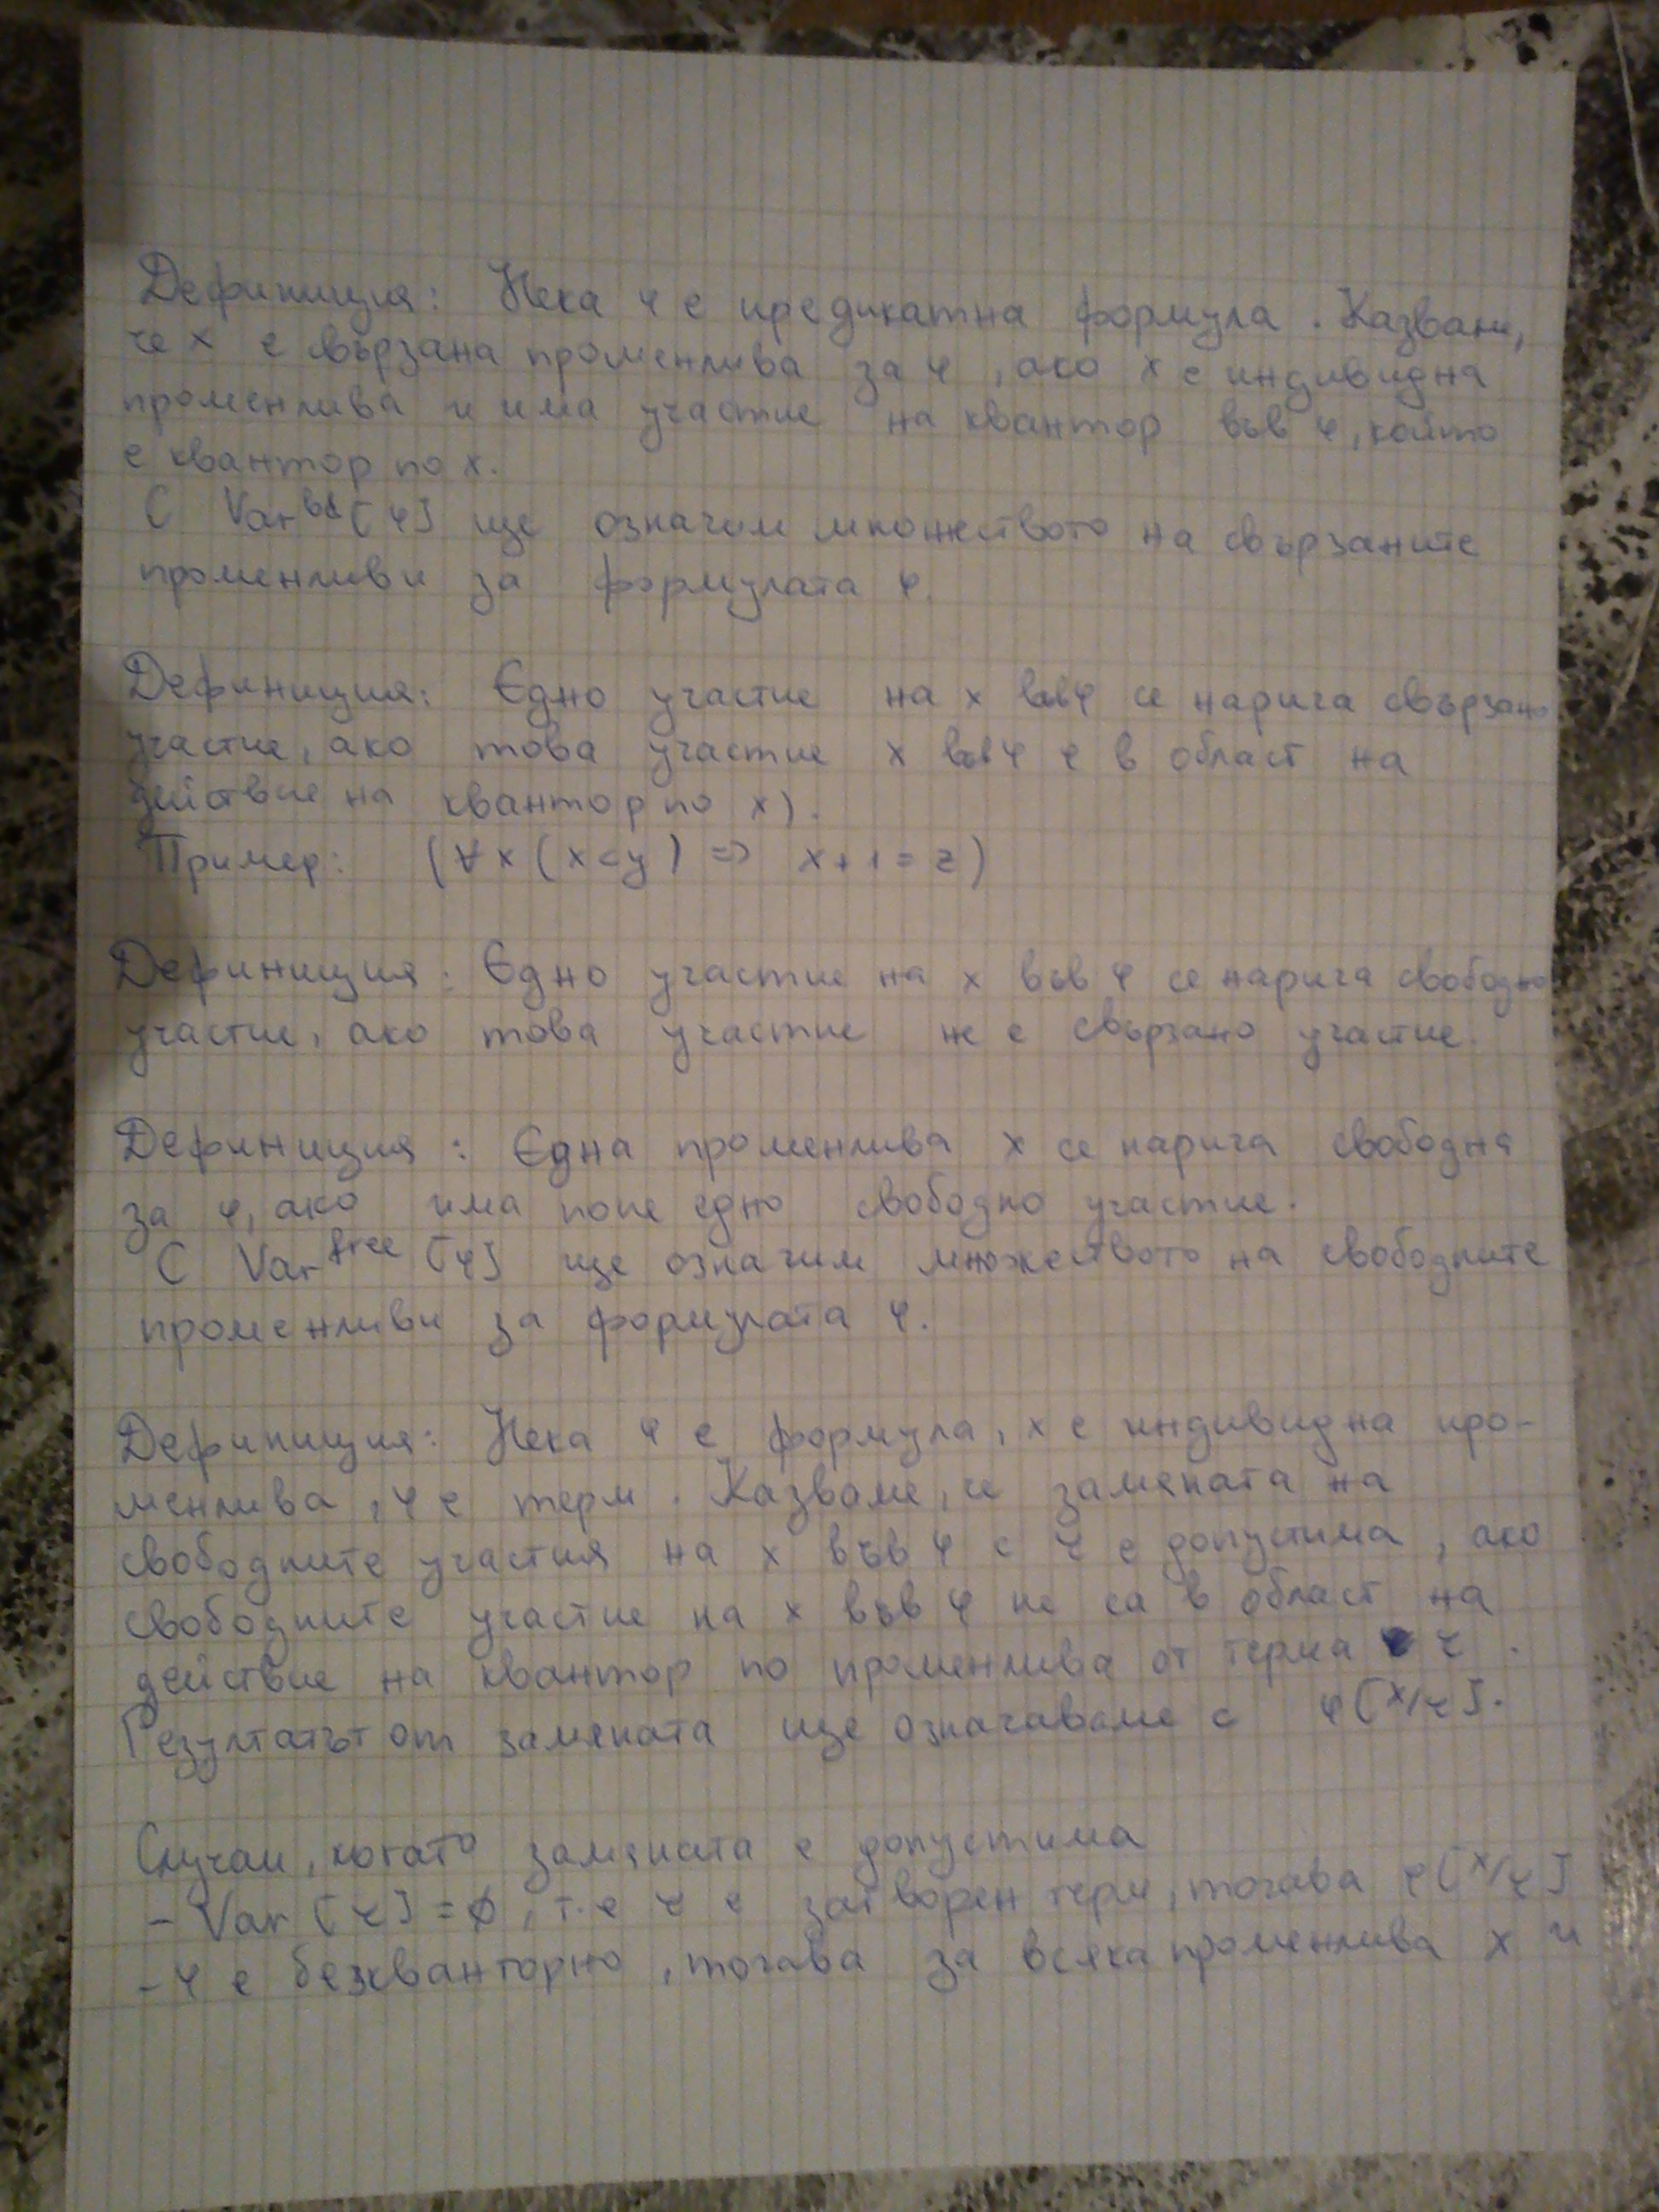 Дефиниция: Нека φ е предикатна формула. Казваме,
че x е свързана променлива за φ, ако x е индивидна
променлива и има участие на квантор във φ, който
е квантор по x.
С Varᵇᵈ[φ] ще означим множеството на свързаните
променливи за формулата φ.
Дефиниция: Едно участие на x във φ се нарича свързано
участие, ако това участие x във φ е в област на
действие на квантор по x).
Пример: (∀x(x<y) => x+1=z)
Дефиниция: Едно участие на x във φ се нарича свободно
участие, ако това участие не е свързано участие.
Дефиниция: Една променлива x се нарича свободна
за φ, ако има поне едно свободно участие.
С Varᶠʳᵉᵉ[φ] ще означим множеството на свободните
променливи за формулата φ.
Дефиниция: Нека φ е формула, x е индивидна про-
менлива, τ е терм. Казваме, че замяната на
свободните участия на x във φ с τ е допустима, ако
свободните участие на x във φ не са в област на
действие на квантор по променлива от терма τ.
Резултатът от замяната ще означаваме с φ[x/τ].
Случаи, когато замяната е допустима
- Var[τ]=∅, т.е τ е затворен терм, тогава φ[x/τ]
- φ е безкванторно, тогава за всяка променлива x и